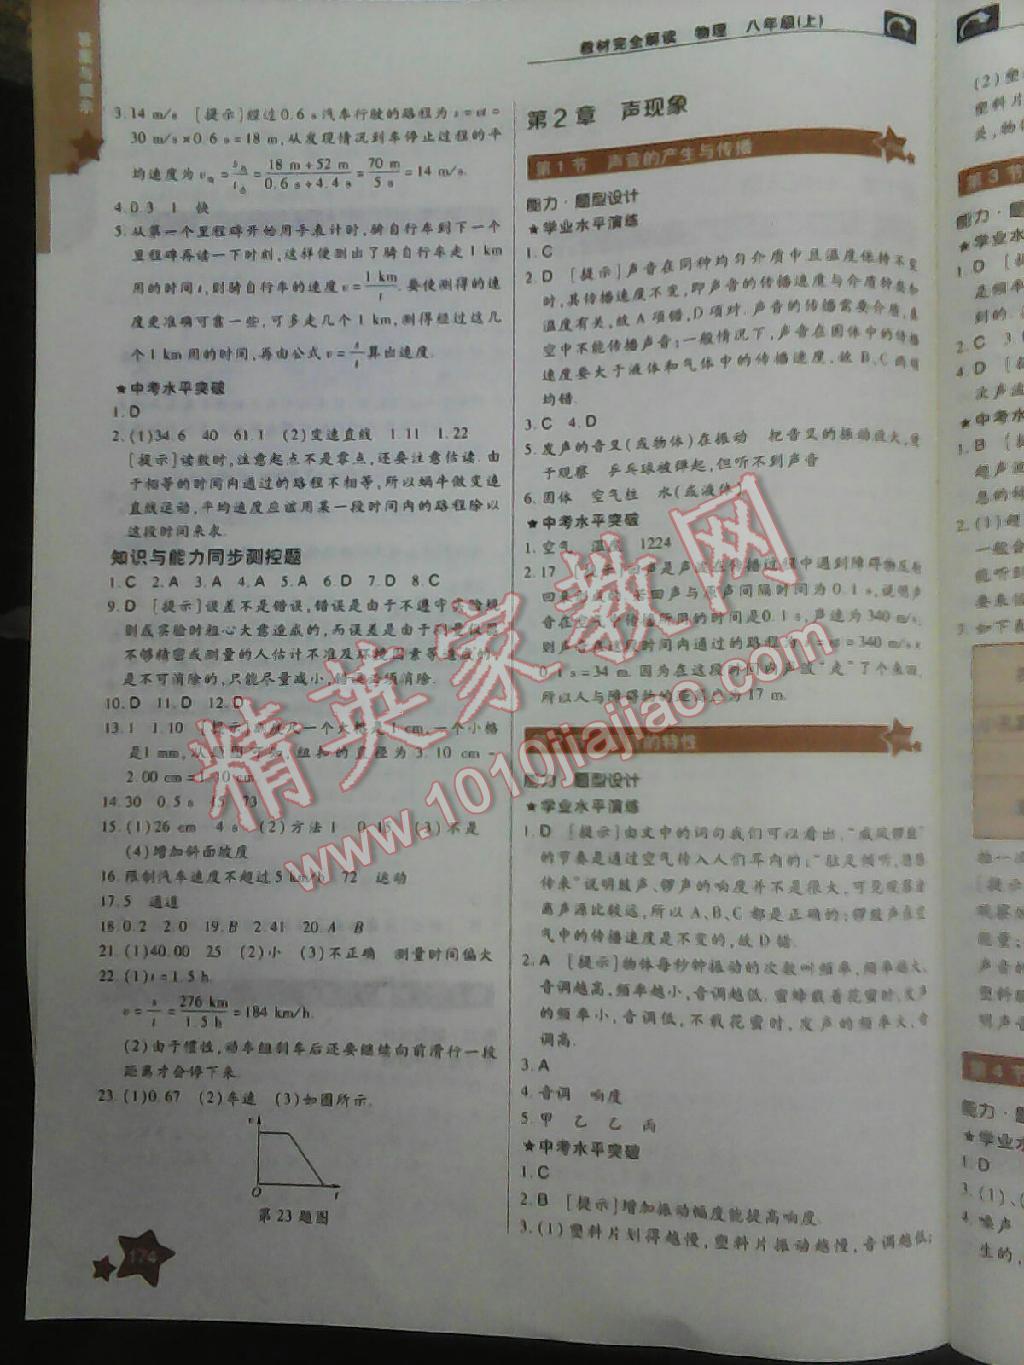 教材完全解读 物理 八年级(上)
答案与提示
3.14 m/s [提示]经过0.6 s汽车行驶的路程为s=vt=
30 m/s×0.6 s=18 m,从发现情况到车停止过程的平
均速度为v=s/t=(18 m+52 m)/(0.6 s+4.4 s)=70 m/5 s=14 m/s.
4.0.3 1 快
5.从第一个里程碑开始用手表计时,骑自行车到下一个
里程碑再读一下时刻,这样便测出了骑自行车走1 km
用的时间t,则骑自行车的速度v=1 km/t.要使测得的速
度更准确可靠一些,可多走几个1 km,测得经过这几
个1 km用的时间,再由公式v=s/t算出速度.
★中考水平突破
1.D
2.(1)34.6 40 61.1 (2)变速直线 1.11 1.22
[提示]读数时,注意起点不是零点,还要注意估读.由
于相等的时间内通过的路程不相等,所以蜗牛做变速
直线运动,平均速度应该用某一段时间内的路程除以
这段时间来求.
知识与能力同步测控题
1.C 2.A 3.A 4.A 5.A 6.D 7.D 8.C
9.D [提示]误差不是错误,错误是由于不遵守实验规
则或实验时粗心大意造成的,而误差是由于测量仪器
不够精密或测量的人估计不准及环境因素等造成的,
是不可消除的,只能尽量减小,错误必须消除.
10.D 11.D 12.D
13.1 1.10 [提示]放大尺一个大格是1 cm,一个小格
是1 mm,从题图可知 纽扣的直径为3.10 cm-
2.00 cm=1.10 cm.
14.30 0.5 s 15 73
15.(1)26 cm 4 s (2)方法1 0.15 (3)不是
(4)增加斜面坡度
16.限制汽车速度不超过5 km/h 72 运动
17.5 通道
18.0.2 2.0 19.B 2.41 20.A B
21.(1)40.00 25 (2)小 (3)不正确 测量时间偏大
22.(1)t=1.5 h.
v=s/t=276 km/1.5 h=184 km/h.
(2)由于惯性,动车组刹车后还要继续向前滑行一段
距离才会停下来.
23.(1)0.67 (2)车速 (3)如图所示.
v
O
t
第23题图
174
第2章 声现象
第1节 声音的产生与传播
能力·题型设计
★学业水平演练
1.C
2.D [提示]声音在同种均匀介质中且温度保持不变
时,其传播速度不变,即声音的传播速度与介质种类和
温度有关,故A项错,D项对.声音的传播需要介质,真
空中不能传播声音;一般情况下,声音在固体中的传播
速度要大于液体和气体中的传播速度.故B、C两项
均错.
3.C 4.D
5.发声的音叉(或物体)在振动 把音叉的振动放大,便
于观察 乒乓球被弹起,但听不到声音
6.固体 空气柱 水(或液体)
★中考水平突破
1.空气 温度 1224
2.17 [提示]回声是声波在传播过程中遇到障碍物反射
回来形成的,若回声与原声间隔时间为0.1 s,说明声
音在空气中传播所用的时间是0.1 s,声速为340 m/s
则声音在这段时间内通过的路程为s=vt=340 m/s×
0.1 s=34 m.因为在这段时间内声波“走”了个来回,
所以人与障碍物的距离应为17 m.
的特性
能力·题型设计
★学业水平演练
1.D [提示]由文中的词句我们可以看出,“威风锣鼓”
的节奏是通过空气传入人们耳内的;“驻足倾听,隐隐
传来”说明鼓声、锣声的响度并不是很大,可见观察者
离声源比较远,所以A、B、C都是正确的;锣鼓声在空
气中的传播速度是不变的,故D错.
2.A [提示]物体每秒钟振动的次数叫频率,频率越大,
音调越高,频率越小,音调越低.蜜蜂载着花蜜时,发声
的频率小,音调低,不载花蜜时,发声的频率大,音
调高.
3.A
4.音调 响度
5.甲 乙 乙 丙
★中考水平突破
1.C
2.B [提示]增加振动幅度能提高响度.
3.(1)塑料片划得越慢,塑料片振动越慢,音调越低;
(2)塑
塑料片
关,物体
第3节
能力·题
★学业水
1.D [
是频率
到的.
2.C 3.
4.D [提
次声波
★中考水
1.B [提
超声波
息的
2.(1)超
一般会
能听到
要来
3.如下表
[提示
观察
能量;
声音的
塑料
明声音
第4节
能力·题
★学业水
1.D
3.(1)、(
4.噪声
生的,
精英家教网
www.1010jiajiao.com